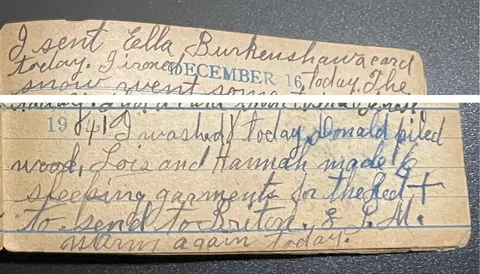 I sent Ella Burkenshaw a card
today. I ironed today. The
DECEMBER 16
snow went some
1941 I washed today, Donald piled
wood, Lois and Hannah made 16
sleeping garments for the Red +
to send to Briton. & L. M.
warm again today.